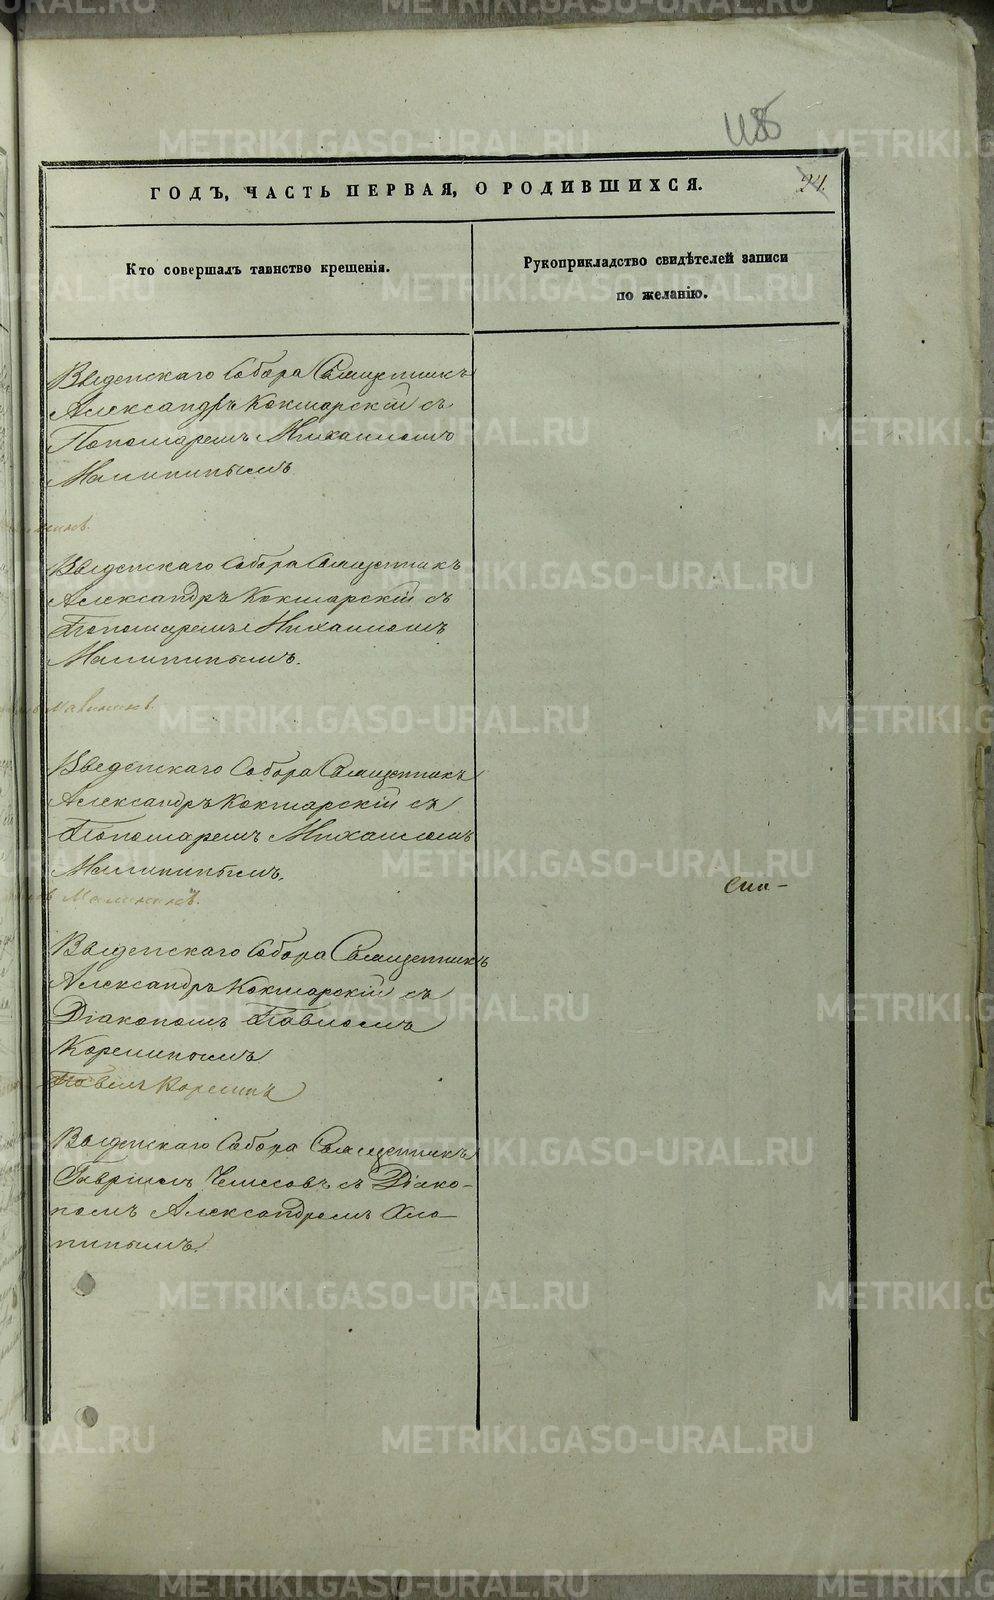 118
ГОДЪ, ЧАСТЬ ПЕРВАЯ, О РОДИВШИХСЯ.
24.
Кто совершалъ таинство крещенія.
Рукоприкладство свидѣтелей записи
по желанію.
Введенскаго Собора Священникъ
Александръ Кокшарскій съ
Пономаремъ Михаиломъ
Малининымъ
Введенскаго Собора Священникъ
Александръ Кокшарскій съ
Пономаремъ Михаиломъ
Малининымъ.
Малининъ.
Введенскаго Собора Священникъ
Александръ Кокшарскій съ
Пономаремъ Михаиломъ
Малининымъ.
Малининъ.
Введенскаго Собора Священникъ
Александръ Кокшарскій съ
Діакономъ Павломъ
Корелинымъ
Павелъ Корелинъ
Введенскаго Собора Священникъ
Гавріилъ съ Діако-
номъ Александромъ Хло-
пинымъ.
METRIKI.GASO-URAL.RU